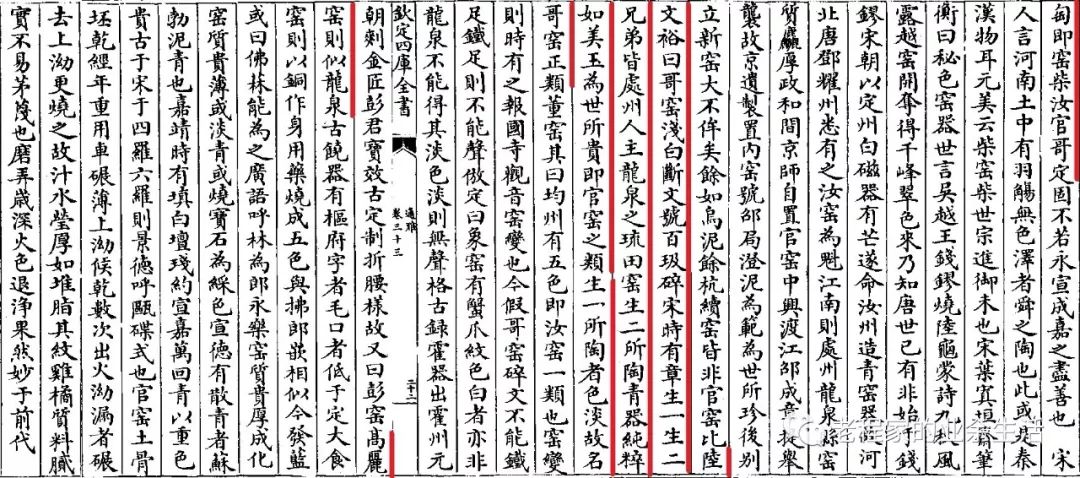 匋即窑柴汝官哥定固不若永宣成嘉之盡善也　宋
人言河南土中有羽觴無色澤者舜之陶也此或是秦
漢物耳元美云柴窑柴世宗進御未也宋葉真垣齋筆
衡曰秘色窑器世言吴越王錢鏐燒陸龜蒙詩九秋風
露越窑開奪得千峰翠色來乃知唐世已有非始于錢
鏐宋朝以定州白磁器有芒遂命汝州造青窑器河
北唐鄧耀州悉有之汝窑為魁江南則處州龍泉縣窑
質麤厚政和間京師自置官窑中興渡江邵成章提舉
襲故京遺製置内窑號邵局澄泥為範為世所珍後别
立新窑大不侔矣餘如烏泥餘杭續窑皆非官窑比陸
文裕曰哥窑淺白斷文號百圾碎宋時有章生一生二
兄弟皆處州人主龍泉之琉田窑生二所陶青器純粹
如美玉為世所貴即官窑之類生一所陶者色淡故名
哥窑正類董窑其曰均州有五色即汝窑一類也窑變
則時有之報國寺觀音窑變也今假哥窑碎文不能鐵
足鐵足則不能聲倣定曰象窑有蟹爪紋色白者亦非
龍泉不能得其淡色淡則無聲格古録霍器出霍州元
欽定四庫全書
通雅
卷三十三
朝剡金匠彭君寳效古定制折腰様故又曰彭窑髙麗
窑則似龍泉古饒器有樞府字者毛口者低于定大食
窑則以銅作身用藥燒成五色與拂郎嵌相似今發藍
或曰佛菻能為之廣語呼林為郎永樂窑質貴厚成化
窑質貴薄或淡青或燒寳石為綵色宣德有散青者蘇
勃泥青也嘉靖時有填白壇琖約宣嘉萬回青以重色
貴古于宋于四羅六羅則景德呼甌碟式也官窑土骨
坯乾經年重用車碾薄上泑候乾數次出火泑漏者碾
去上泑更燒之故汁水瑩厚如堆脂其紋雞橘質料膩
實不易茅篾也磨弄歲深火色退淨果然妙于前代
老程家的业余生活